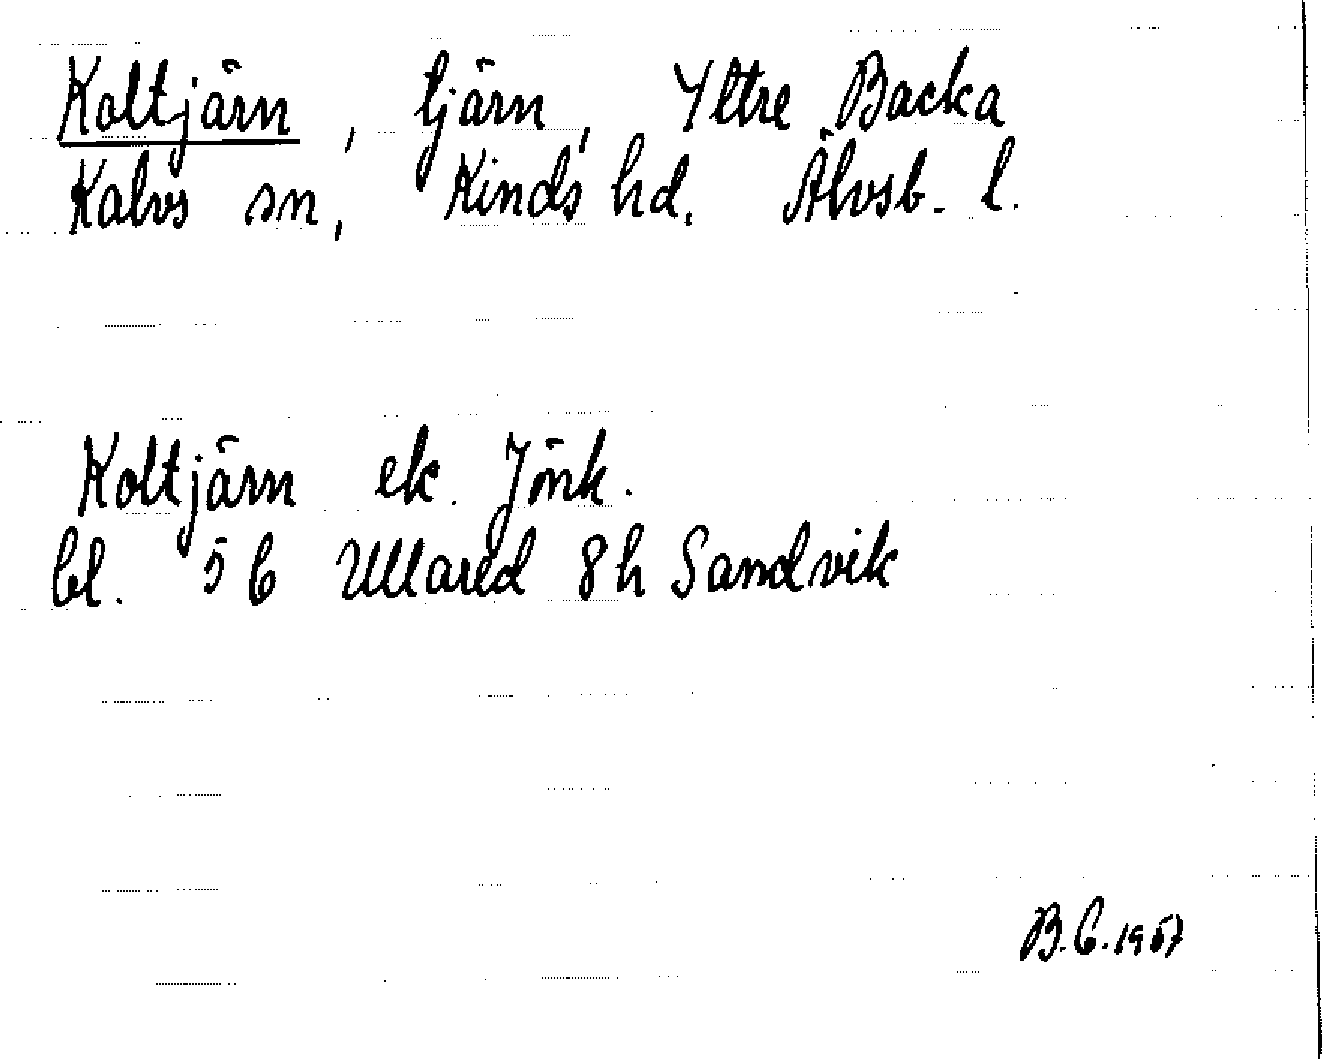 Koltjärn, tjärn, Yttre Backa
Kalvs sn, Kinds hd. Älvsb. l.
Koltjärn ek. Jönk.
bl. 5 C Ullared 8h Sandvik
B.C. 1967